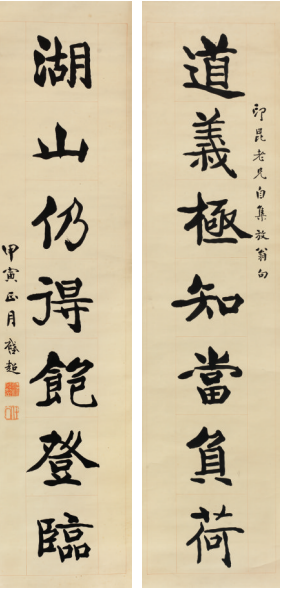 道義極知當負荷
印昆老兄自集放翁句
湖山仍得飽登臨
甲寅正月啓超